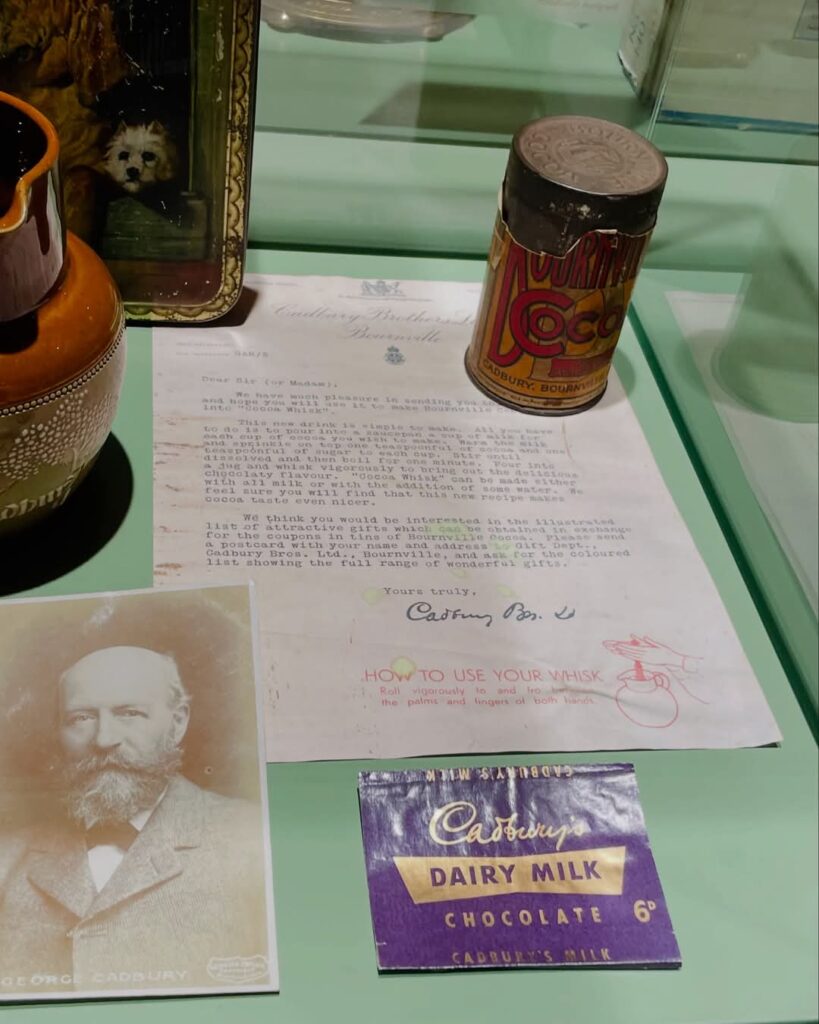 Cadbury Brothers
Bournville
GAH/S
Dear Sir (or Madam),
We have much pleasure in sending you
and hope you will use it to make Bournville
into "Cocoa Whisk".
This new drink is simple to make. All you have
to do is to pour into a saucepan a cup of milk for
each cup of cocoa you wish to make. Warm the milk
and sprinkle on top one teaspoonful of cocoa and one
teaspoonful of sugar to each cup. Stir until
dissolved and then boil for one minute. Pour into
a jug and whisk vigorously to bring out the delicious
chocolaty flavour. "Cocoa Whisk" can be made either
with all milk or with the addition of some water. We
feel sure you will find that this new recipe makes
cocoa taste even nicer.
We think you would be interested in the illustrated
list of attractive gifts which can be obtained in exchange
for the coupons in tins of Bournville Cocoa. Please send
a postcard with your name and address to Gift Dept.,
Cadbury Bros. Ltd., Bournville, and ask for the coloured
list showing the full range of wonderful gifts.
Yours truly,
Cadbury Bros. Ld
HOW TO USE YOUR WHISK
Roll vigorously to and fro between
the palms and fingers of both hands.
BOURNVI
COCO
CADBURY, BOURNVI
adbury
GEORGE CADBURY
CADBURY'S MILK
Cadbury's
DAIRY MILK
CHOCOLATE 6D
CADBURY'S MILK